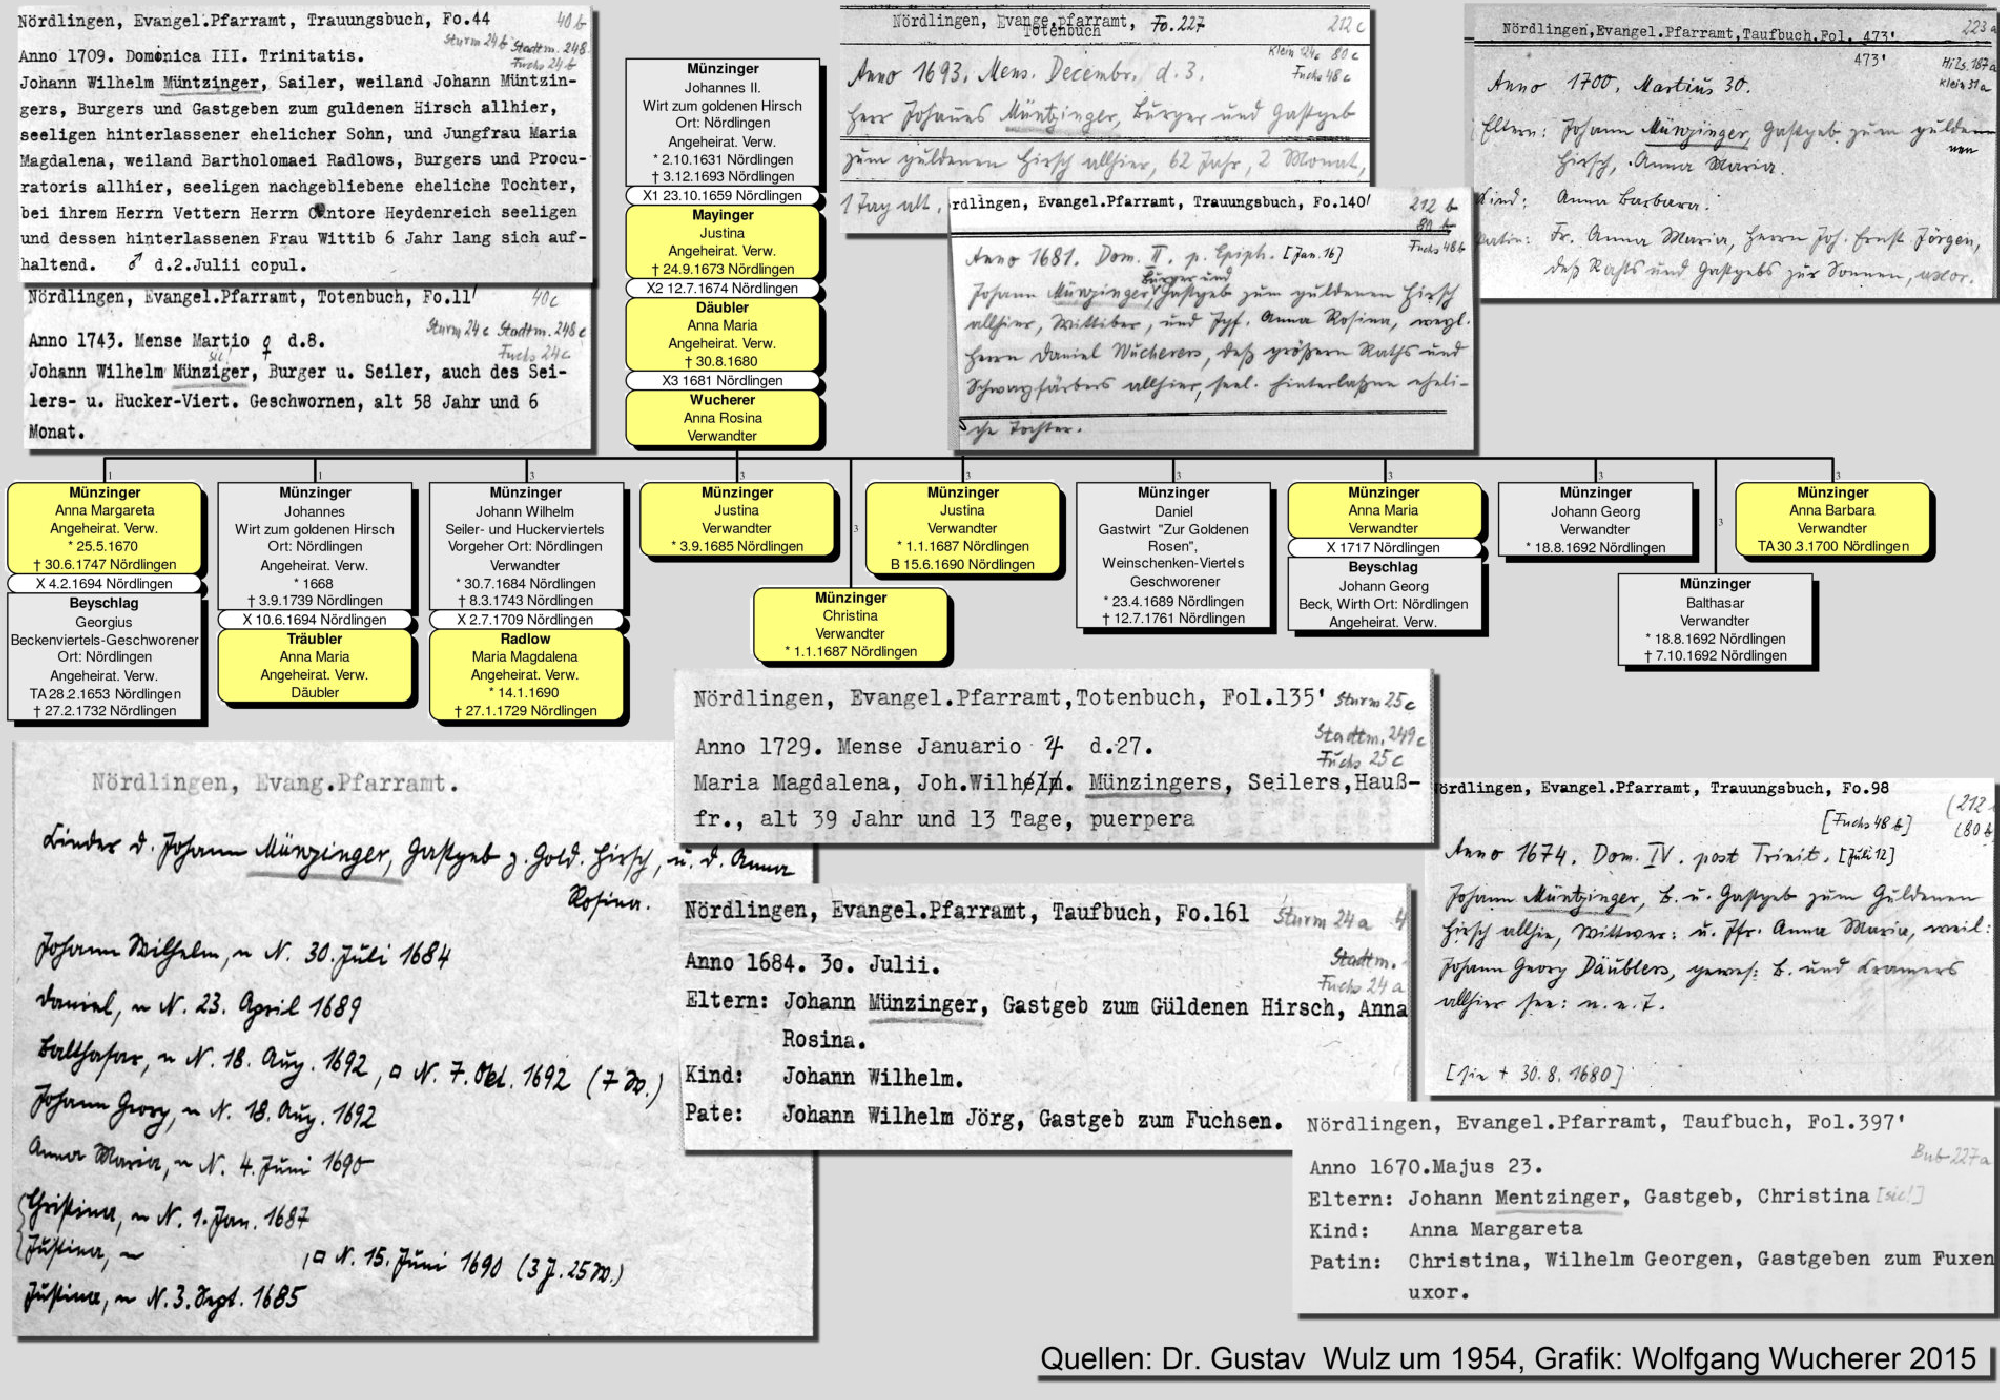 Nördlingen, Evangel.Pfarramt, Trauungsbuch, Fo.44
40 b
Sturm 24 b Stadtm. 248
Fuchs 24 b
Anno 1709. Domonica III. Trinitatis.
Johann Wilhelm Müntzinger, Sailer, weiland Johann Müntzin-
gers, Burgers und Gastgeben zum guldenen Hirsch allhier,
seeligen hinterlassener ehelicher Sohn, und Jungfrau Maria
Magdalena, weiland Bartholomaei Radlows, Burgers und Procu-
ratoris allhier, seeligen nachgebliebene eheliche Tochter,
bei ihrem Herrn Vettern Herrn Cantore Heydenreich seeligen
und dessen hinterlassenen Frau Wittib 6 Jahr lang sich auf-
haltend. ♂ d.2.Julii copul.
Nördlingen, Evangel.Pfarramt, Totenbuch, Fo.11'
40c
Sturm 24 c Stadtm. 248 c
Fuchs 24c
Anno 1743. Mense Martio ♀ d.8.
sic!
Johann Wilhelm Münziger, Burger u. Seiler, auch des Sei-
lers- u. Hucker-Viert. Geschwornen, alt 58 Jahr und 6
Monat.
Münzinger
Johannes II.
Wirt zum goldenen Hirsch
Ort: Nördlingen
Angeheirat. Verw.
* 2.10.1631 Nördlingen
† 3.12.1693 Nördlingen
X1 23.10.1659 Nördlingen
Mayinger
Justina
Angeheirat. Verw.
† 24.9.1673 Nördlingen
X2 12.7.1674 Nördlingen
Däubler
Anna Maria
Angeheirat. Verw.
† 30.8.1680
X3 1681 Nördlingen
Wucherer
Anna Rosina
Verwandter
Nördlingen, Evange.pfarramt, Fo.227
Totenbuch
212 c
Klein 124c 80 c
Fuchs 48 c
Anno 1693. Mens. Decembr. d. 3.
Herr Johannes Müntzinger, Burger und Gastgeb
zum guldenen Hirsch allhier, 62 Jahr, 2 Monat,
1 Tag alt,
rdlingen, Evangel.Pfarramt, Trauungsbuch, Fo.140'
212 b
80 b
Fuchs 48 b
Anno 1681. Dom. II. p. Epiph. [Jan. 16]
Burger und
Johann Münzinger, Gastgeb zum guldenen Hirsch
allhier, Wittiber, und Jgf. Anna Rosina, weyl.
Herrn Daniel Wucherers, deß größern Raths und
Schwarzfärbers allhier, seel. hinterlaßne eheli-
che Tochter.
Nördlingen,Evangel.Pfarramt,Taufbuch,Fol. 473'
223a
473'
Hilz. 187 a
Klein 31 a
Anno 1700. Martius 30.
Eltern: Johann Münzinger, Gastgeb zum gulden
nen
Hirsch, Anna Maria.
Kind: Anna Barbara.
Patin: Fr. Anna Maria, Herrn Joh. Ernst Jörgen,
deß Rahts und Gastgebs zur Sonnen, uxor.
1
1
3
3
3
3
3
3
3
3
3
Münzinger
Anna Margareta
Angeheirat. Verw.
* 25.5.1670
† 30.6.1747 Nördlingen
X 4.2.1694 Nördlingen
Beyschlag
Georgius
Beckenviertels-Geschworener
Ort: Nördlingen
Angeheirat. Verw.
TA 28.2.1653 Nördlingen
† 27.2.1732 Nördlingen
Münzinger
Johannes
Wirt zum goldenen Hirsch
Ort: Nördlingen
Angeheirat. Verw.
* 1668
† 3.9.1739 Nördlingen
X 10.6.1694 Nördlingen
Träubler
Anna Maria
Angeheirat. Verw.
Däubler
Münzinger
Johann Wilhelm
Seiler- und Huckerviertels
Vorgeher Ort: Nördlingen
Verwandter
* 30.7.1684 Nördlingen
† 8.3.1743 Nördlingen
X 2.7.1709 Nördlingen
Radlow
Maria Magdalena
Angeheirat. Verw.
* 14.1.1690
† 27.1.1729 Nördlingen
Münzinger
Justina
Verwandter
* 3.9.1685 Nördlingen
Münzinger
Christina
Verwandter
* 1.1.1687 Nördlingen
Münzinger
Justina
Verwandter
* 1.1.1687 Nördlingen
B 15.6.1690 Nördlingen
Münzinger
Daniel
Gastwirt "Zur Goldenen
Rosen",
Weinschenken-Viertels
Geschworener
* 23.4.1689 Nördlingen
† 12.7.1761 Nördlingen
Münzinger
Anna Maria
Verwandter
X 1717 Nördlingen
Beyschlag
Johann Georg
Beck, Wirth Ort: Nördlingen
Angeheirat. Verw.
Münzinger
Johann Georg
Verwandter
* 18.8.1692 Nördlingen
Münzinger
Balthasar
Verwandter
* 18.8.1692 Nördlingen
† 7.10.1692 Nördlingen
Münzinger
Anna Barbara
Verwandter
TA 30.3.1700 Nördlingen
Nördlingen, Evangel.Pfarramt,Totenbuch, Fol.135'
Sturm 25 c
Stadtm. 249 c
Fuchs 25 c
Anno 1729. Mense Januario ♃ d.27.
Maria Magdalena, Joh.Wilhelm. Münzingers, Seilers,Hauß-
fr., alt 39 Jahr und 13 Tage, puerpera
Nördlingen, Evang.Pfarramt.
Kinder d. Johann Münzinger, Gastgeb z. Gold. Hirsch, u. d. Anna
Rosina.
Johann Wilhelm, ~ N. 30. Juli 1684
Daniel, ~ N. 23. April 1689
Balthasar, ~ N. 18. Aug. 1692, □ N. 7. Okt. 1692 (7 W.)
Johann Georg, ~ N. 18. Aug. 1692
Anna Maria, ~ N. 4. Juni 1690
Christina, ~ N. 1. Jan. 1687
Justina, ~ , □ N. 15. Juni 1690 (3 J. 25 W.)
Justina, ~ N. 3. Sept. 1685
Nördlingen, Evangel.Pfarramt, Taufbuch, Fo.161
Sturm 24 a
Stadtm.
Fuchs 24 a
Anno 1684. 30. Julii.
Eltern: Johann Münzinger, Gastgeb zum Güldenen Hirsch, Anna
Rosina.
Kind: Johann Wilhelm.
Pate: Johann Wilhelm Jörg, Gastgeb zum Fuchsen.
ördlingen, Evangel.Pfarramt, Trauungsbuch, Fo.98
(212
(80 b
[Fuchs 48 b]
Anno 1674. Dom. IV. post Trinit. [Juli 12]
Johann Müntzinger, B. u. Gastgeb zum Guldenen
Hirsch allhie, Wittwer: u. Jfr. Anna Maria, weil:
Johann Georg Däublers, gewes: B. und Kramers
allhier see: n. e. T.
[sie † 30. 8. 1680]
Nördlingen, Evangel.Pfarramt, Taufbuch, Fol.397'
Bub 227a
Anno 1670.Majus 23.
Eltern: Johann Mentzinger, Gastgeb, Christina [sic!]
Kind: Anna Margareta
Patin: Christina, Wilhelm Georgen, Gastgeben zum Fuxen
uxor.
Quellen: Dr. Gustav Wulz um 1954, Grafik: Wolfgang Wucherer 2015